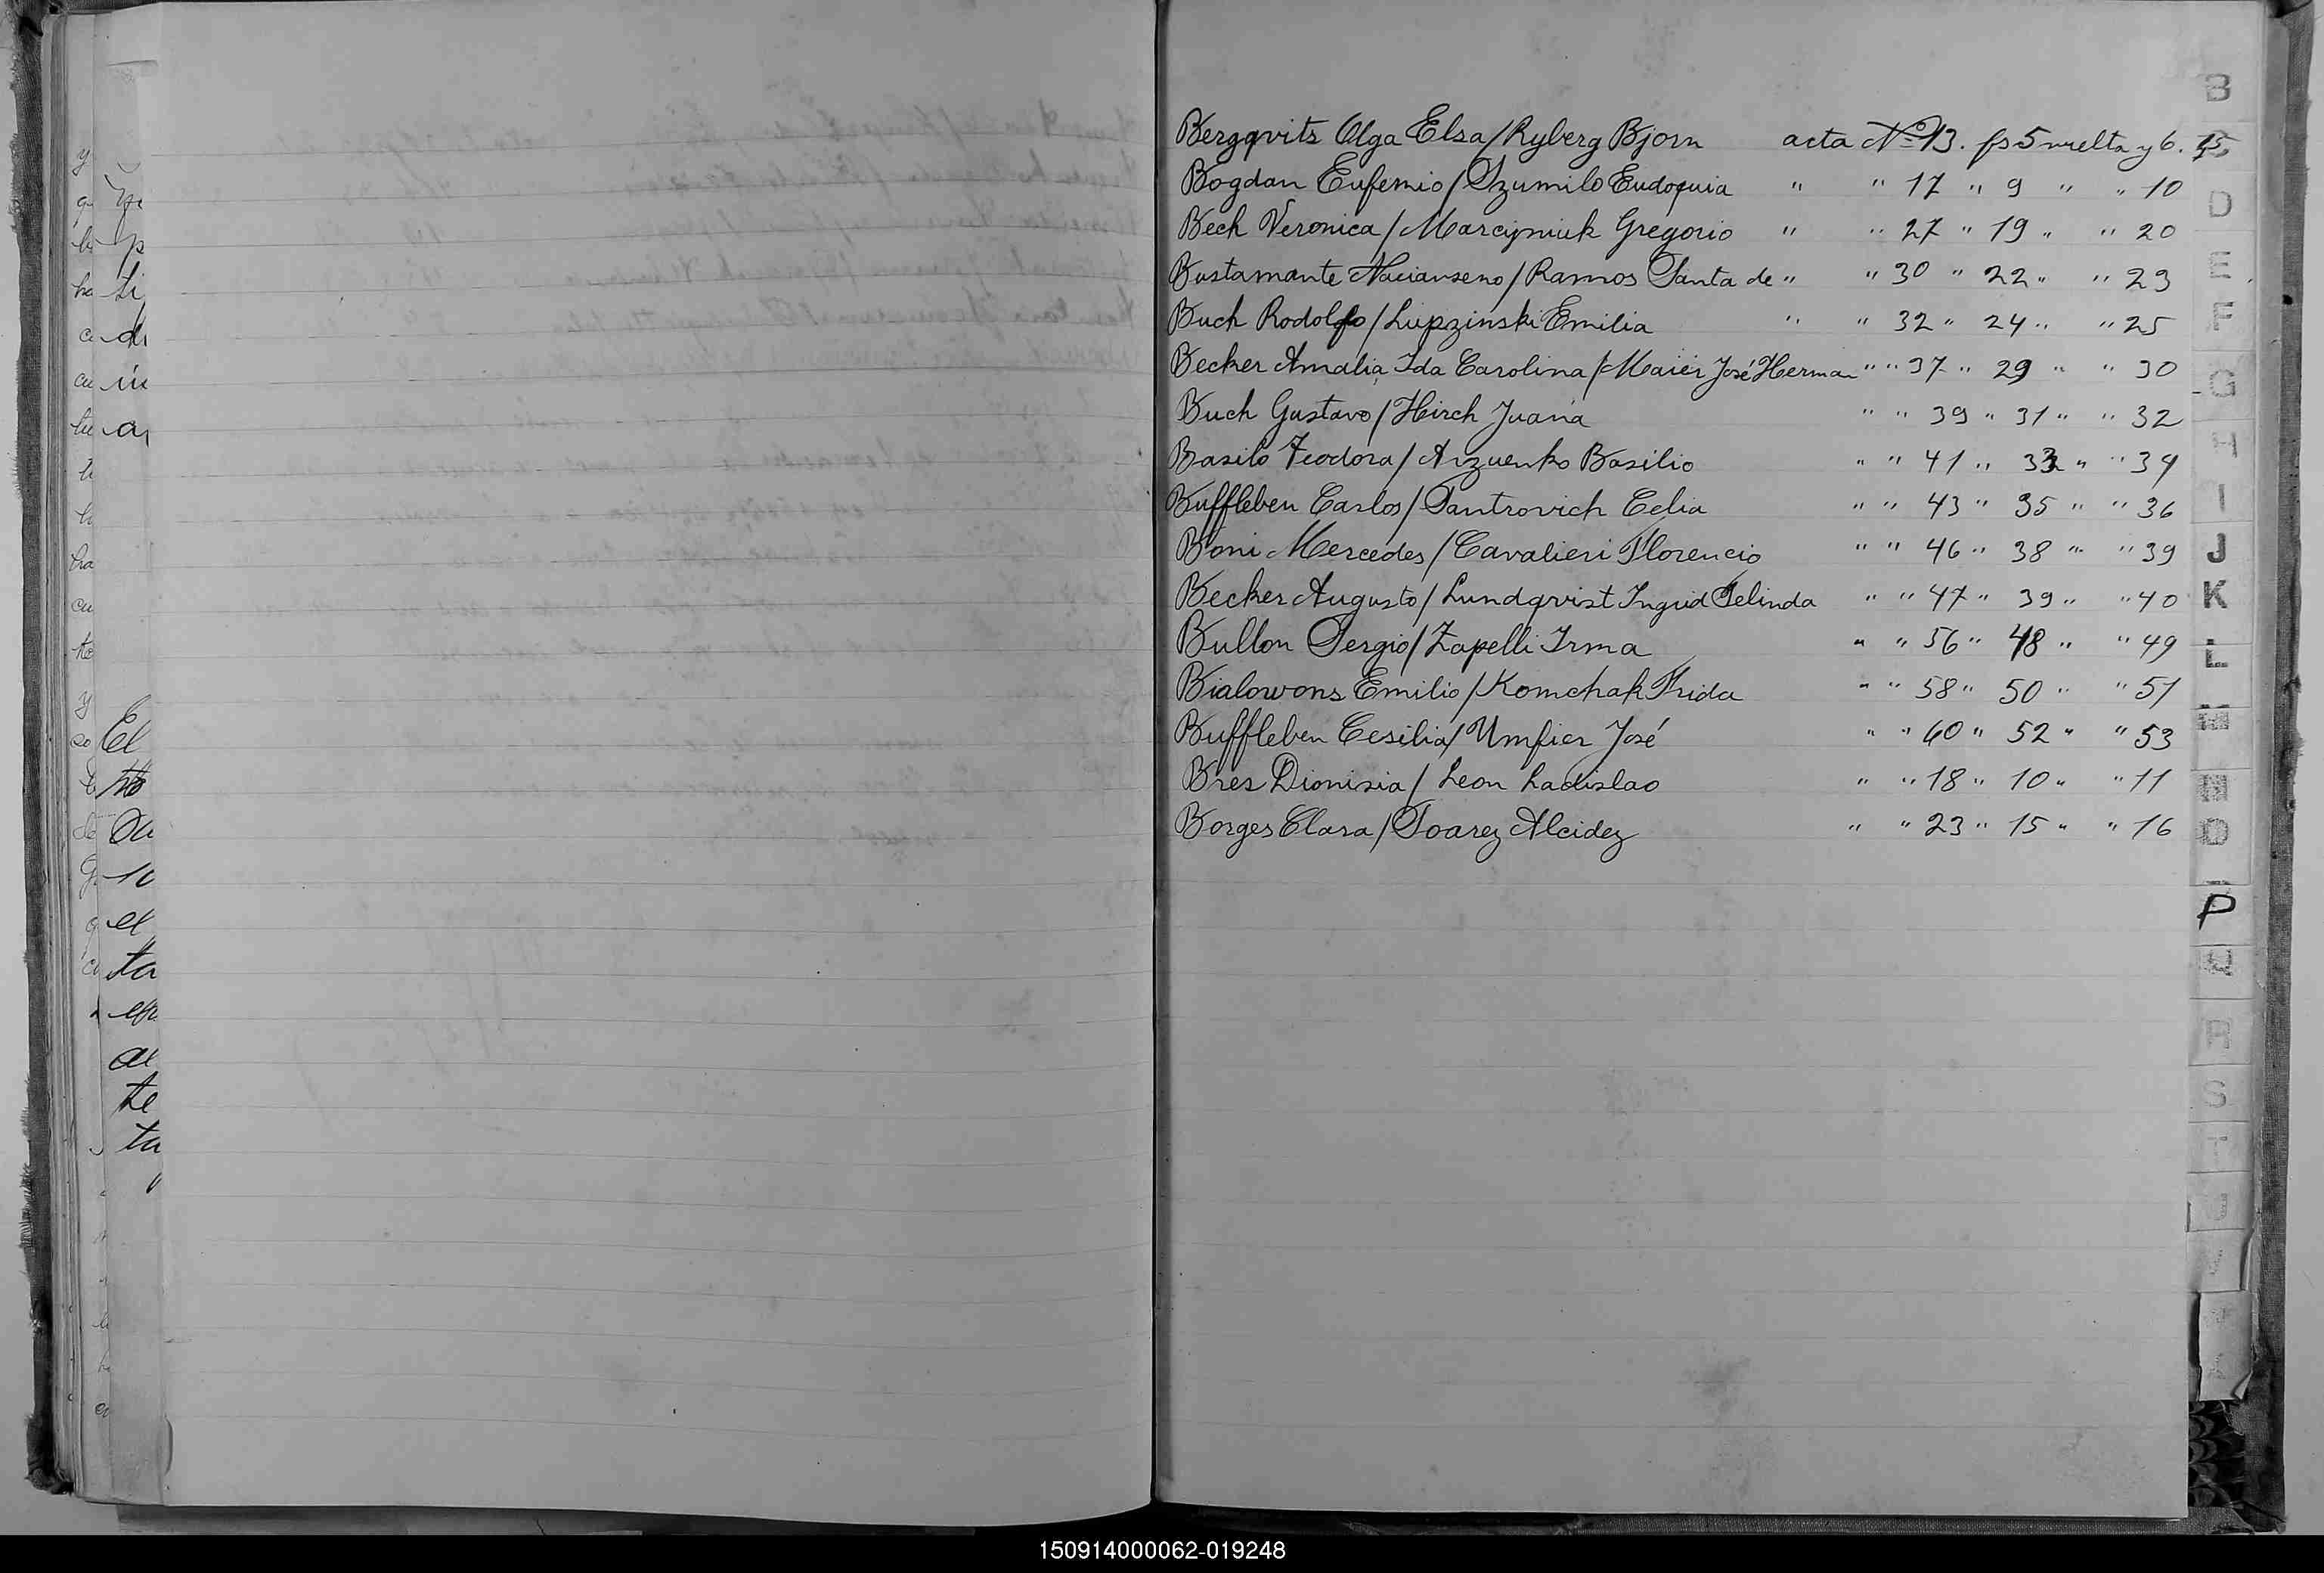 Bergqvits Olga Elsa/Ryberg Bjorn acta Nº 13. fs 5 vuelta y 6.
Bogdan Eufemio/Szumilo Eudoquia " " 17 " 9 " " 10
Bech Veronica/Marcyniuk Gregorio " " 27 " 19 " " 20
Bustamante Nacianseno/Ramos Santa de " " 30 " 22 " " 23
Buch Rodolfo/Lupzinski Emilia " " 32 " 24 " " 25
Becker Amalia Ida Carolina/Maier José Herman " " 37 " 29 " " 30
Buch Gustavo/Hirch Juana " " 39 " 31 " " 32
Basilo Teodora/Arzuenko Basilio " " 41 " 33 " " 34
Buffleben Carlos/Santrovich Celia " " 43 " 35 " " 36
Boni Mercedes/Cavalieri Florencio " " 46 " 38 " " 39
Becker Augusto/Lundqvist Ingrid Selinda " " 47 " 39 " " 40
Bullon Sergio/Zapelli Irma " " 56 " 48 " " 49
Bialowons Emilio/Komchak Frida " " 58 " 50 " " 51
Buffleben Cesilia/Umfier José " " 60 " 52 " " 53
Bres Dionisia/Leon Ladislao " " 18 " 10 " " 11
Borges Clara/Soarez Alcidez " " 23 " 15 " " 16
B
D
E
F
G
H
I
J
K
L
M
N
O
P
Q
R
S
T
El
el
ta
al
te
ta
150914000062-019248